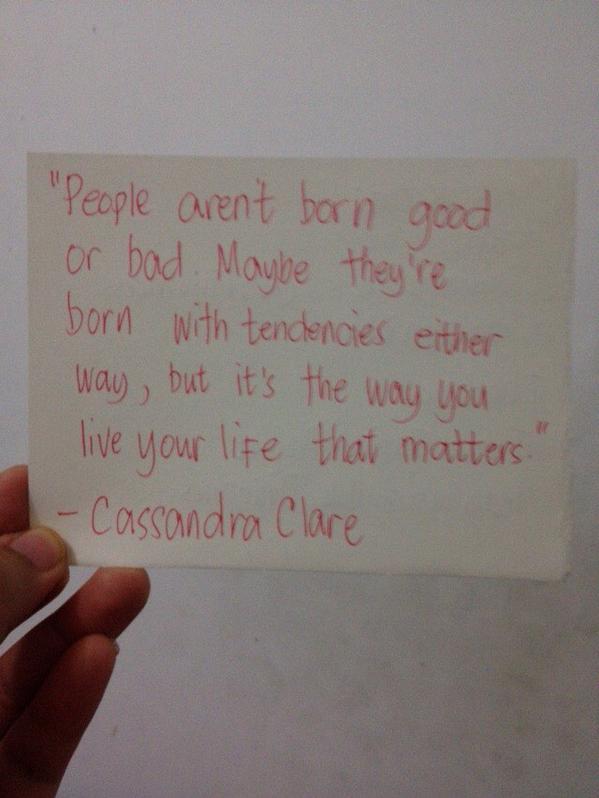 "People aren't born good
or bad. Maybe they're
born with tendencies either
way, but it's the way you
live your life that matters."
- Cassandra Clare